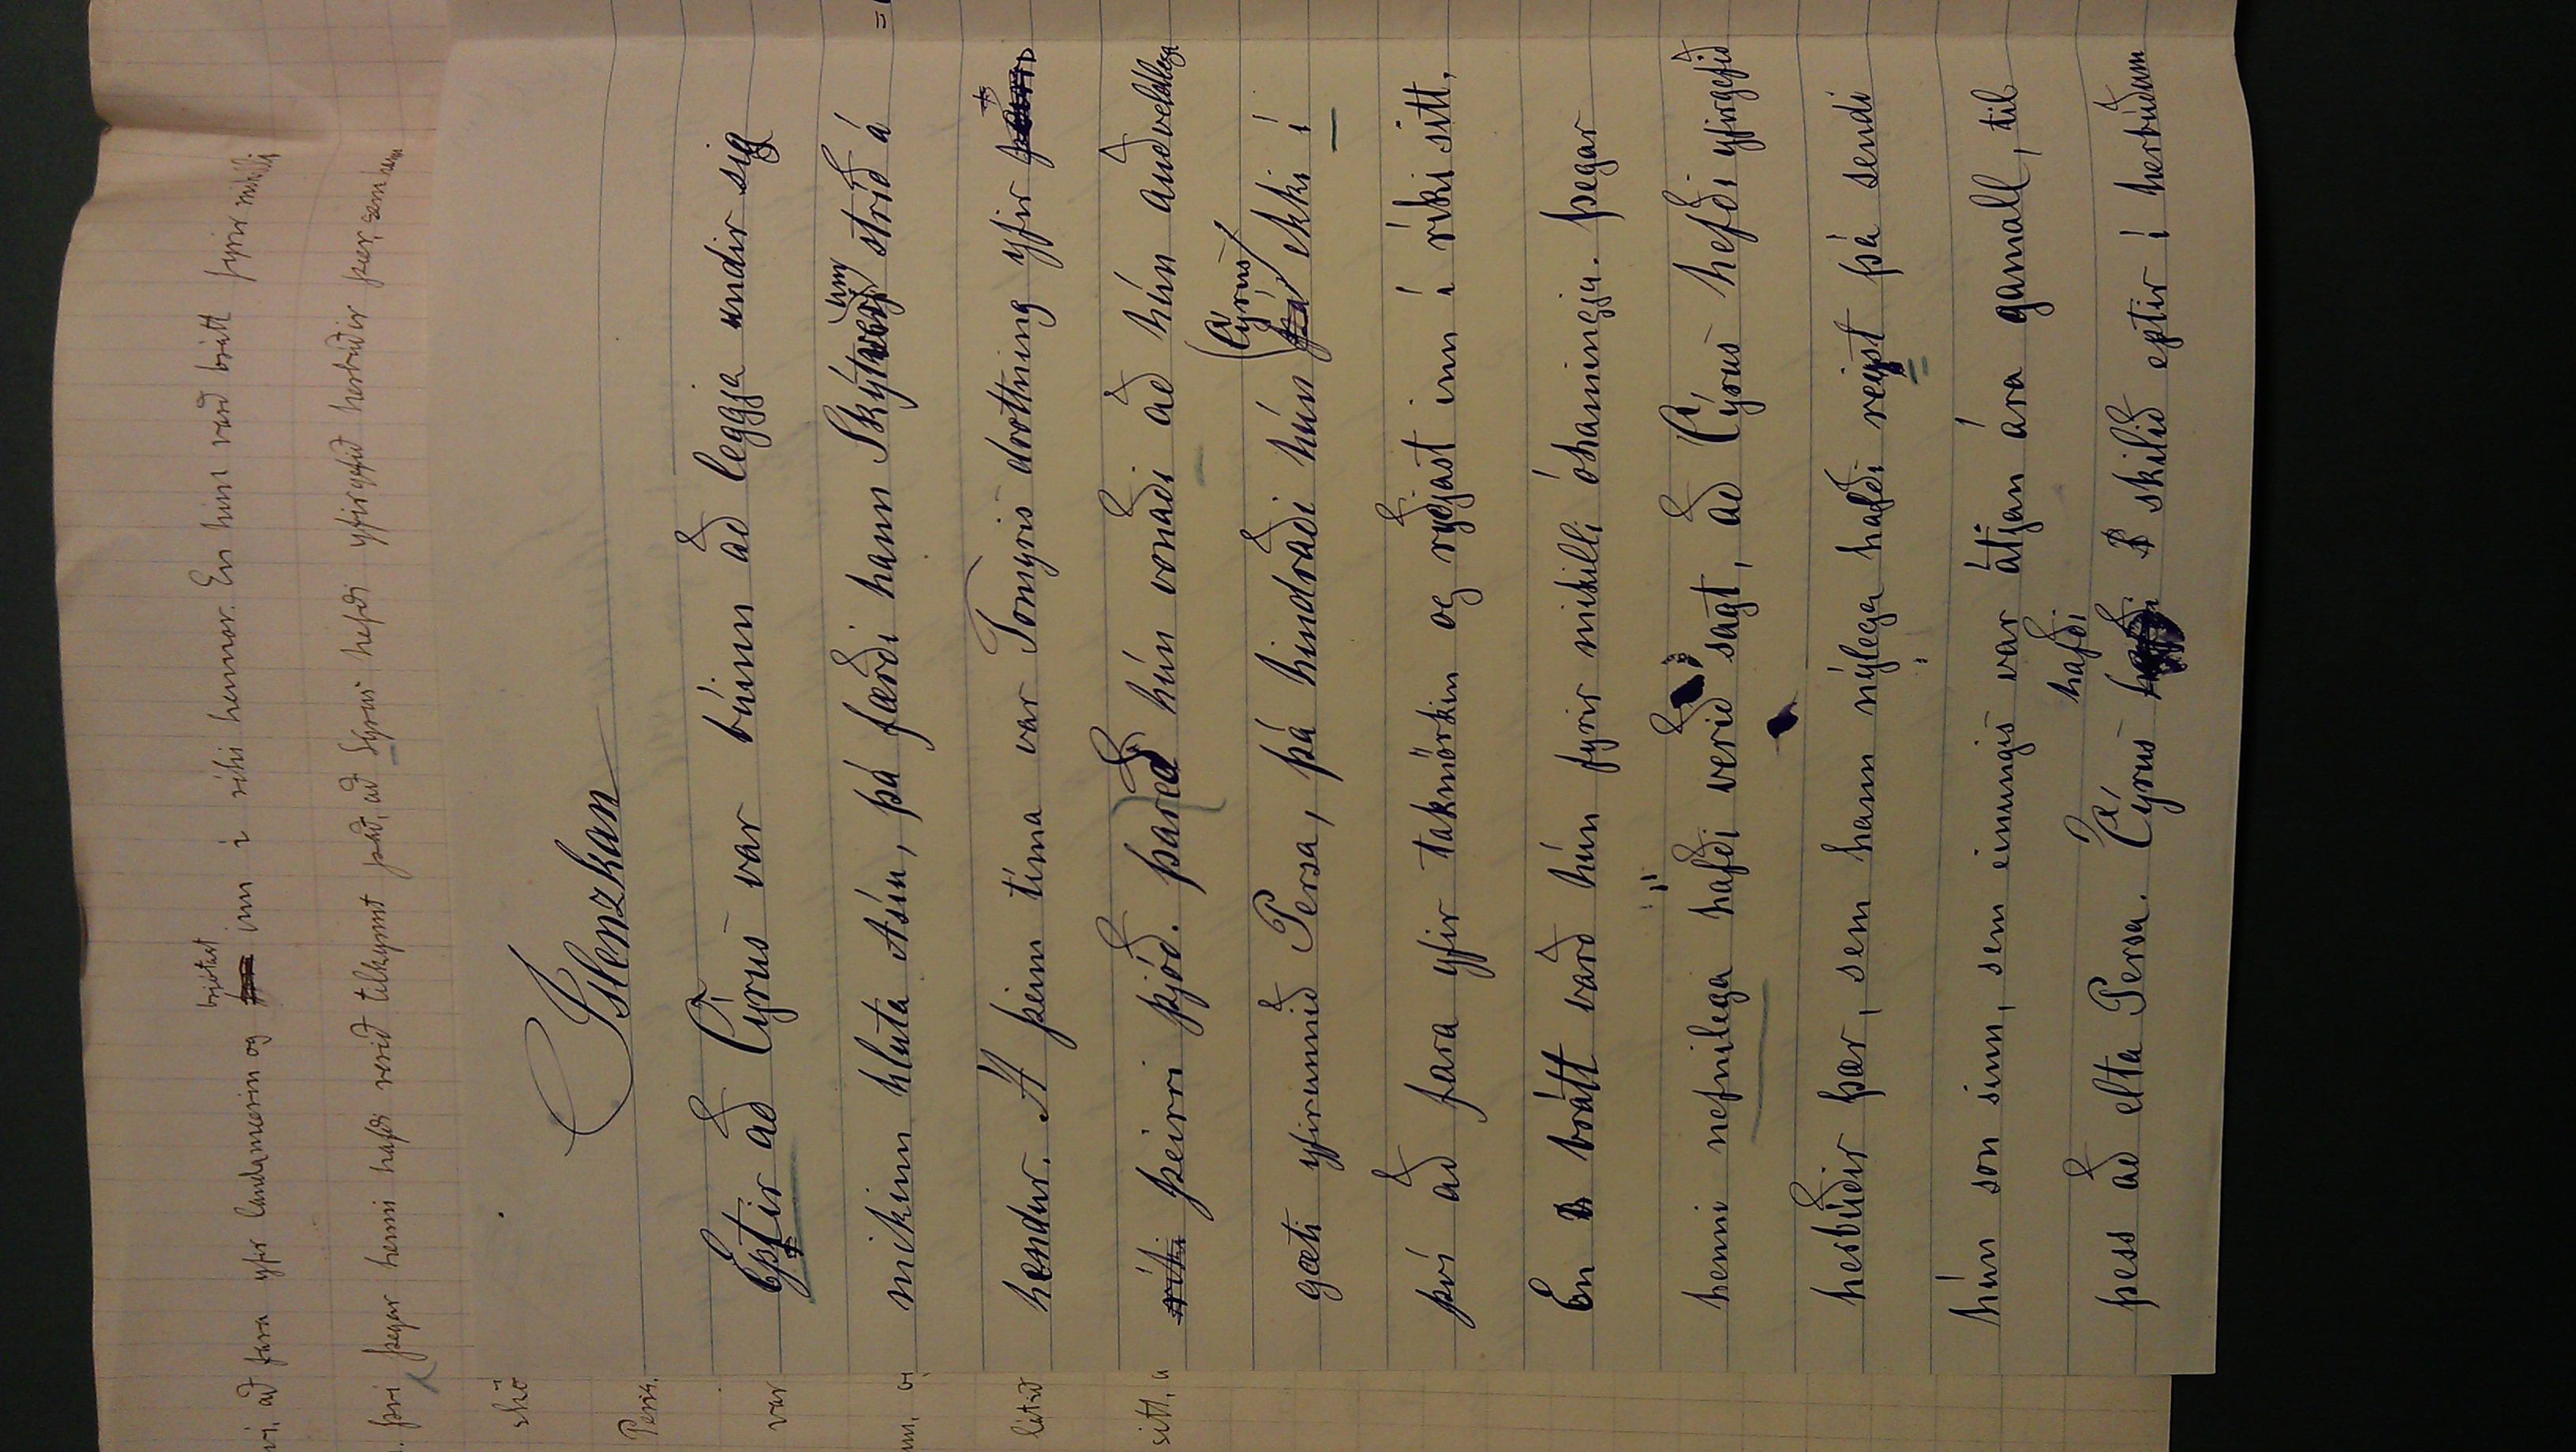 vi, að fara yfir landamærin og brjótast inn í ríki hennar. En hún varð brátt fyrir mikilli
því þegar henni hafði verið tilkynnt það, að Cyrus hefði yfirgefið herbúðir þær, sem hann
Íslenzkan
Eptir að Cýrus var búinn að leggja undir sig
mikinn hluta Asíu, þá færði hann Skýtum stríð á
hendur. Á þeim tíma var Tomyris drottning yfir
ríki þeirri þjóð. Þareð hún vonaði að hún auðveldlega
gæti yfirunnið Persa, þá hindraði hún Cýrus ekki í
því að fara yfir takmörkin og ryðjast inn í ríki sitt.
En brátt varð hún fyrir mikilli óhamingju. Þegar
henni nefnilega hafði verið sagt, að Cýrus hefði yfirgefið
herbúðir þær, sem hann nýlega hafði reist þá sendi
hún son sinn, sem einungis var átján ára gamall, til
þess að elta Persa. Cýrus hafði skilið eptir í herbúðum
skö
Pers.
var
um, og
látið
sitt, a